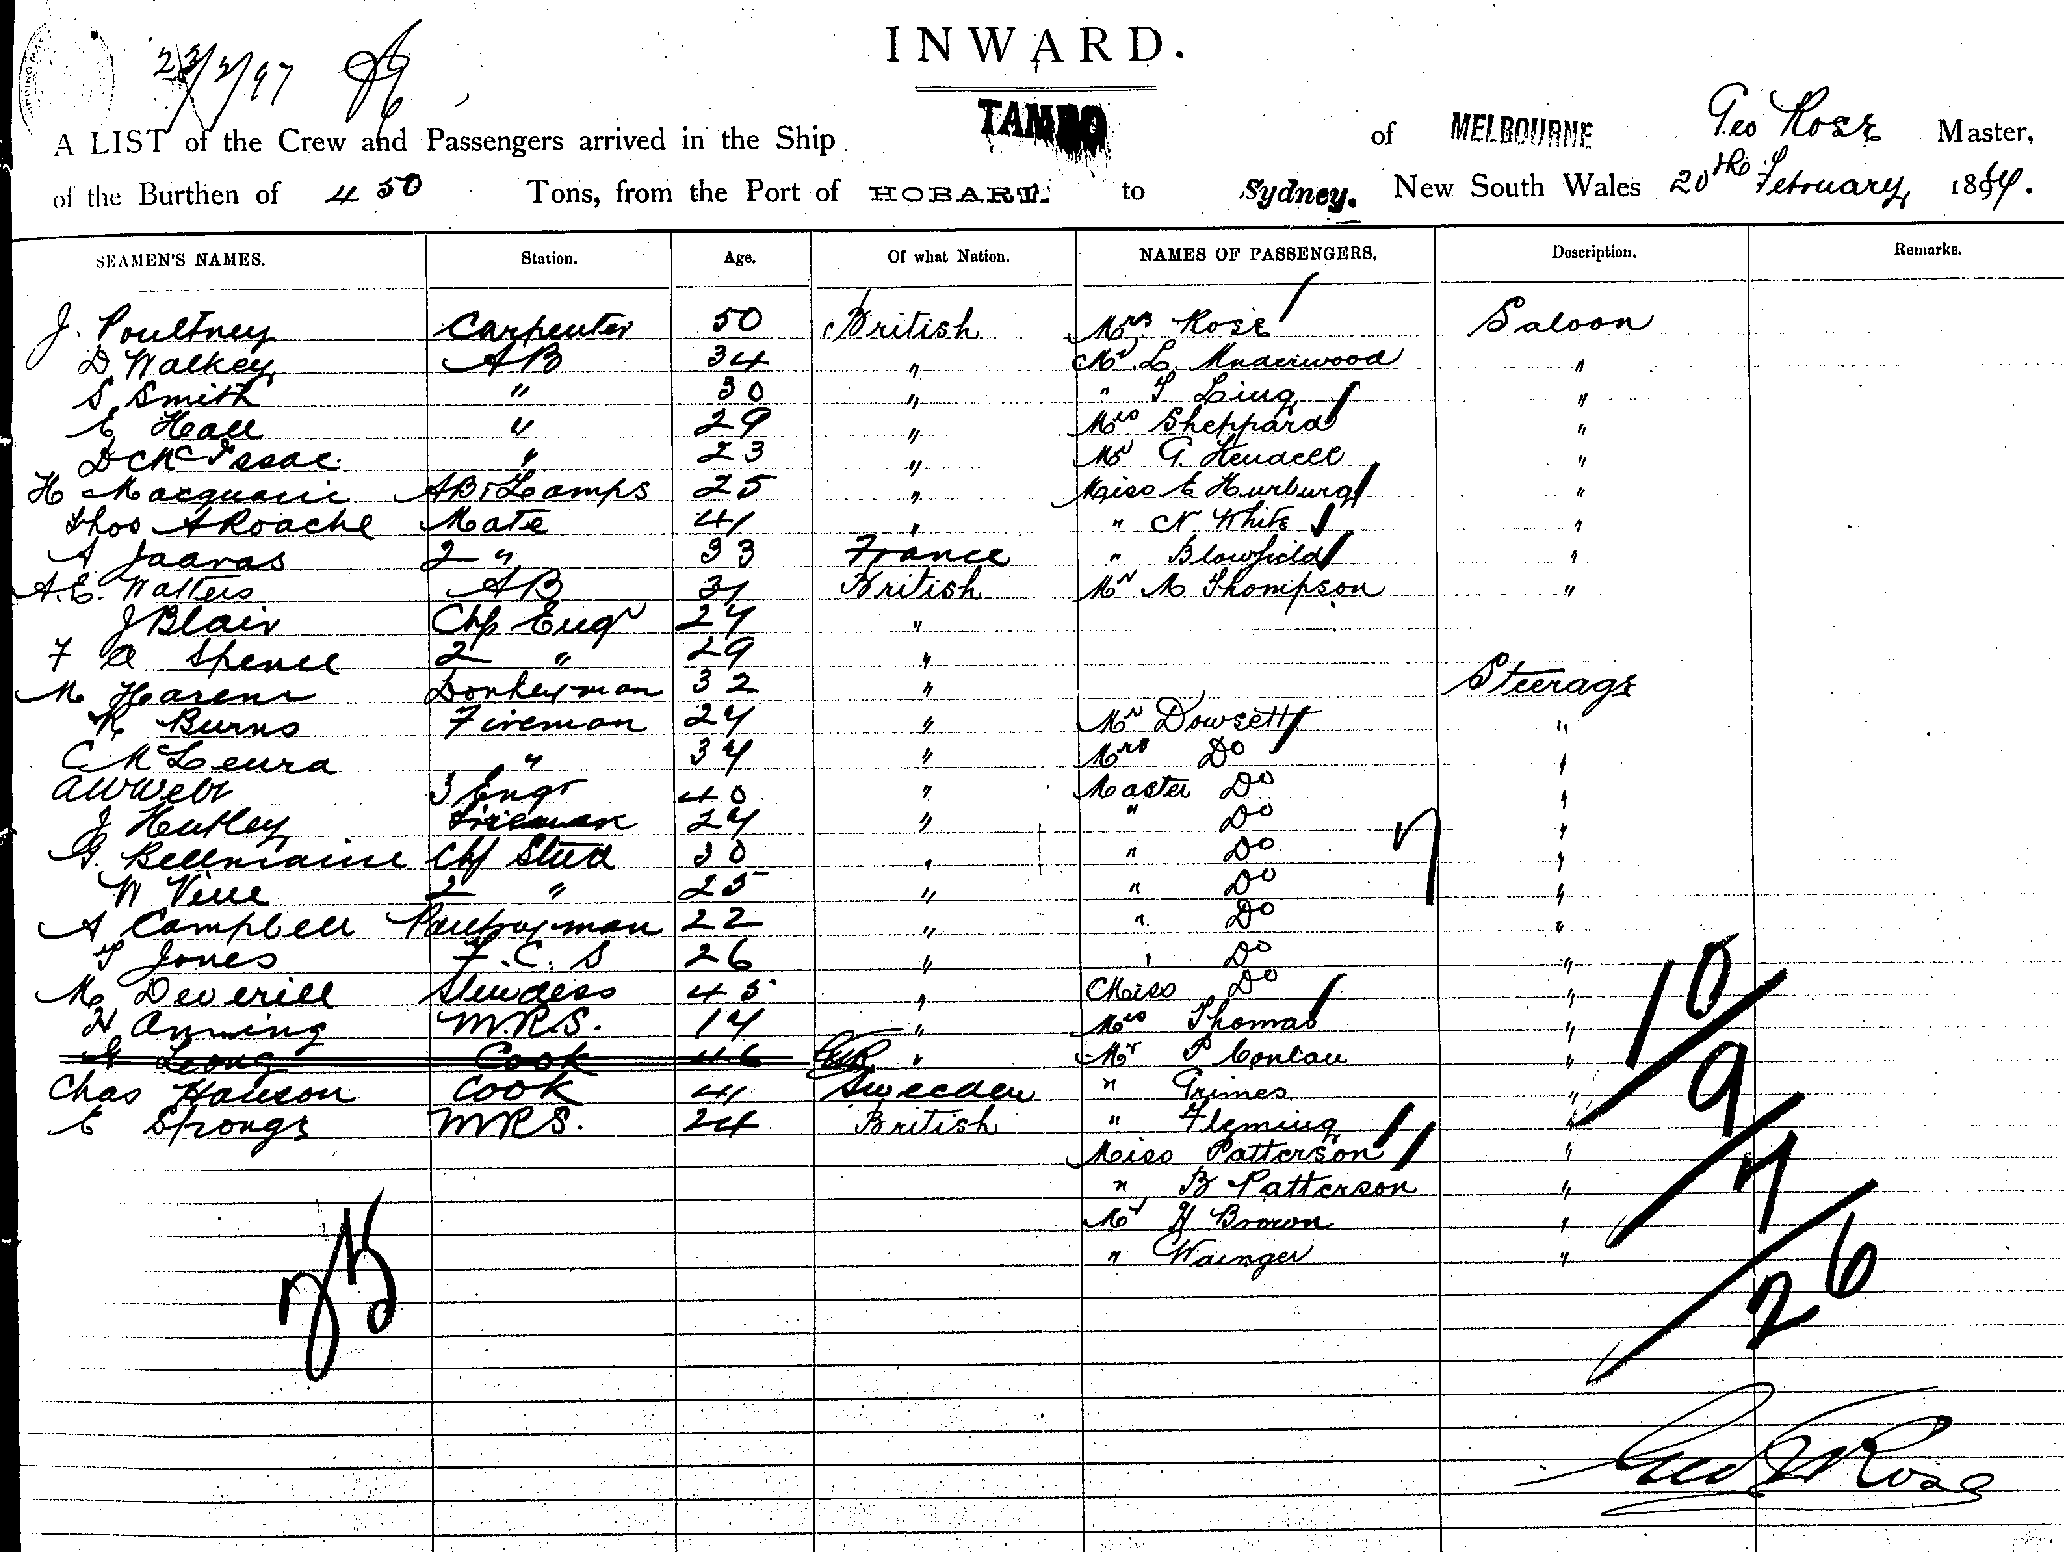 22/2/97
INWARD.
A LIST of the Crew and Passengers arrived in the Ship TAMBO of MELBOURNE Geo Rose Master,
of the Burthen of 450 Tons, from the Port of HOBART. to Sydney. New South Wales 20th February 1897.
SEAMEN'S NAMES. Station. Age. Of what Nation. NAMES OF PASSENGERS. Description. Remarks.
J. Poultney Carpenter 50 British Mrs Rose Saloon
D Walkey AB 34 " Mr L Underwood "
S Smith " 30 " " T Ling "
E Hall " 29 " Mrs Sheppard "
D McIssac " 23 " Mr G. Kendell "
H Macquarie AB & Lamps 25 " Miss E Hurburg "
Thos A Roache Mate 41 " " N White "
A Jaavas 2 " 33 France " Blowfield "
A.E. Watters AB 31 British Mr A Thompson "
J Blair Chf Engr 27 "
F A Spence 2 " 29 "
M Harens Donkeyman 32 " Steerage
R Burns Fireman 27 " Mr Dowsett "
C McLeura " 37 " Mrs Do "
A W Webb 3 Engr 40 " Master Do "
J Hutley Fireman 27 " " Do "
G. Bellmaine Chf Stud 30 " " Do "
W Vine 2 " 25 " " Do "
A Campbell Pantryman 22 " " Do "
T Jones F.C.S 26 " " Do "
M Deverill Stewdess 45 " Miss Do "
H Anning M.R.S. 17 " Mrs Thomas "
Leong Cook 46 " Mr P Conlau "
Chas Hanson Cook 41 Sweeden " Grimes "
E Spongs M.R.S. 24 British " Fleming "
Miss Patterson "
" B Patterson "
Mr H Brown "
" Wainger "
7
10
9
7
26
Geo Rose